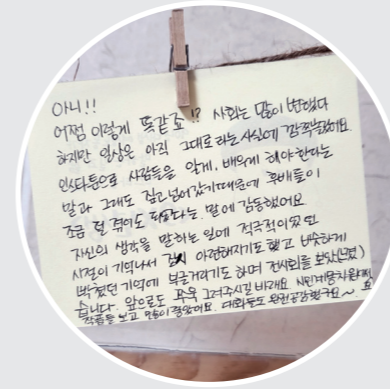 아니!!
어쩜 이렇게 똑같죠!? 사회는 많이 변했다
하지만 일상은 아직 그대로라는 사실에 깜짝놀랐어요.
인스타툰으로 사람들을 알게, 배우게 해야한다는
말과 그래도 짚고넘어갔기때문에 후배들이
조금 덜 겪어도 된다는 말에 감동했어요
자신의 생각을 말하는 일에 적극적이었던
시절이 기억나서 아련해지기도 했고 비슷하게
빡쳤던 기억에 부글거리기도 하며 전시회를 보았
습니다. 앞으로도 꾸욱 그려주시길 바래요
작품들 보고 대화들도 완전공감했구요~